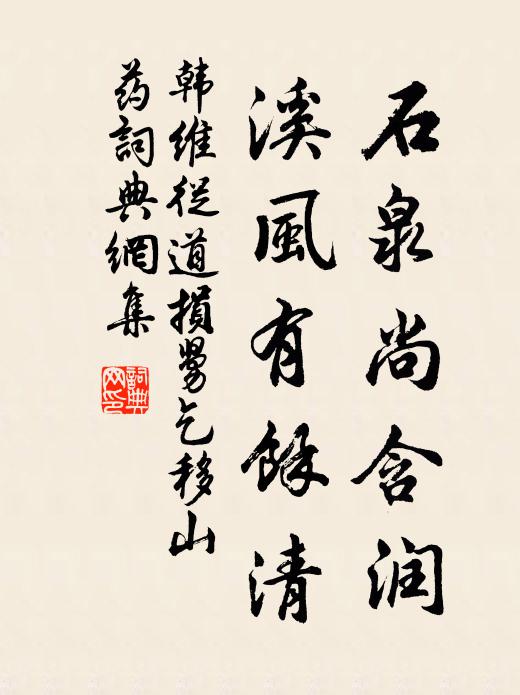 石泉尚含润
溪風有餘清
韩维從道損舅乞移山
药詞典網集
詞典
网印